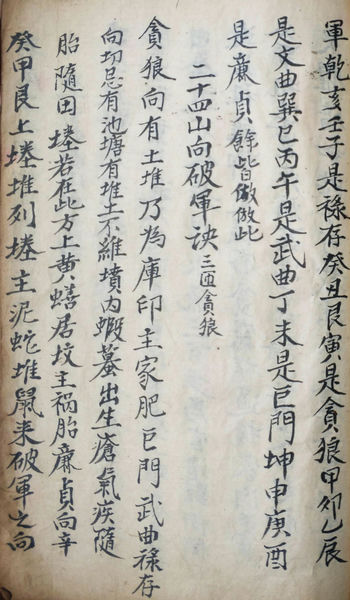 軍乾亥壬子是祿存癸丑艮寅是貪狼甲卯乙辰
是文曲巽巳丙午是武曲丁未是巨門坤申庚酉
是廉貞餘皆倣做此
二十四山向破軍訣三四貪狼
貪狼向有土堆乃為庫印主家肥巨門武曲祿存
向切忌有池塘有堆土不維墳內蝦蟇出生瘡氣疾隨
胎隨田塝若在此方上黄蟮居坟主祸胎廉貞向辛
癸甲艮上塝堆列塝主泥蛇堆鼠来破軍之向